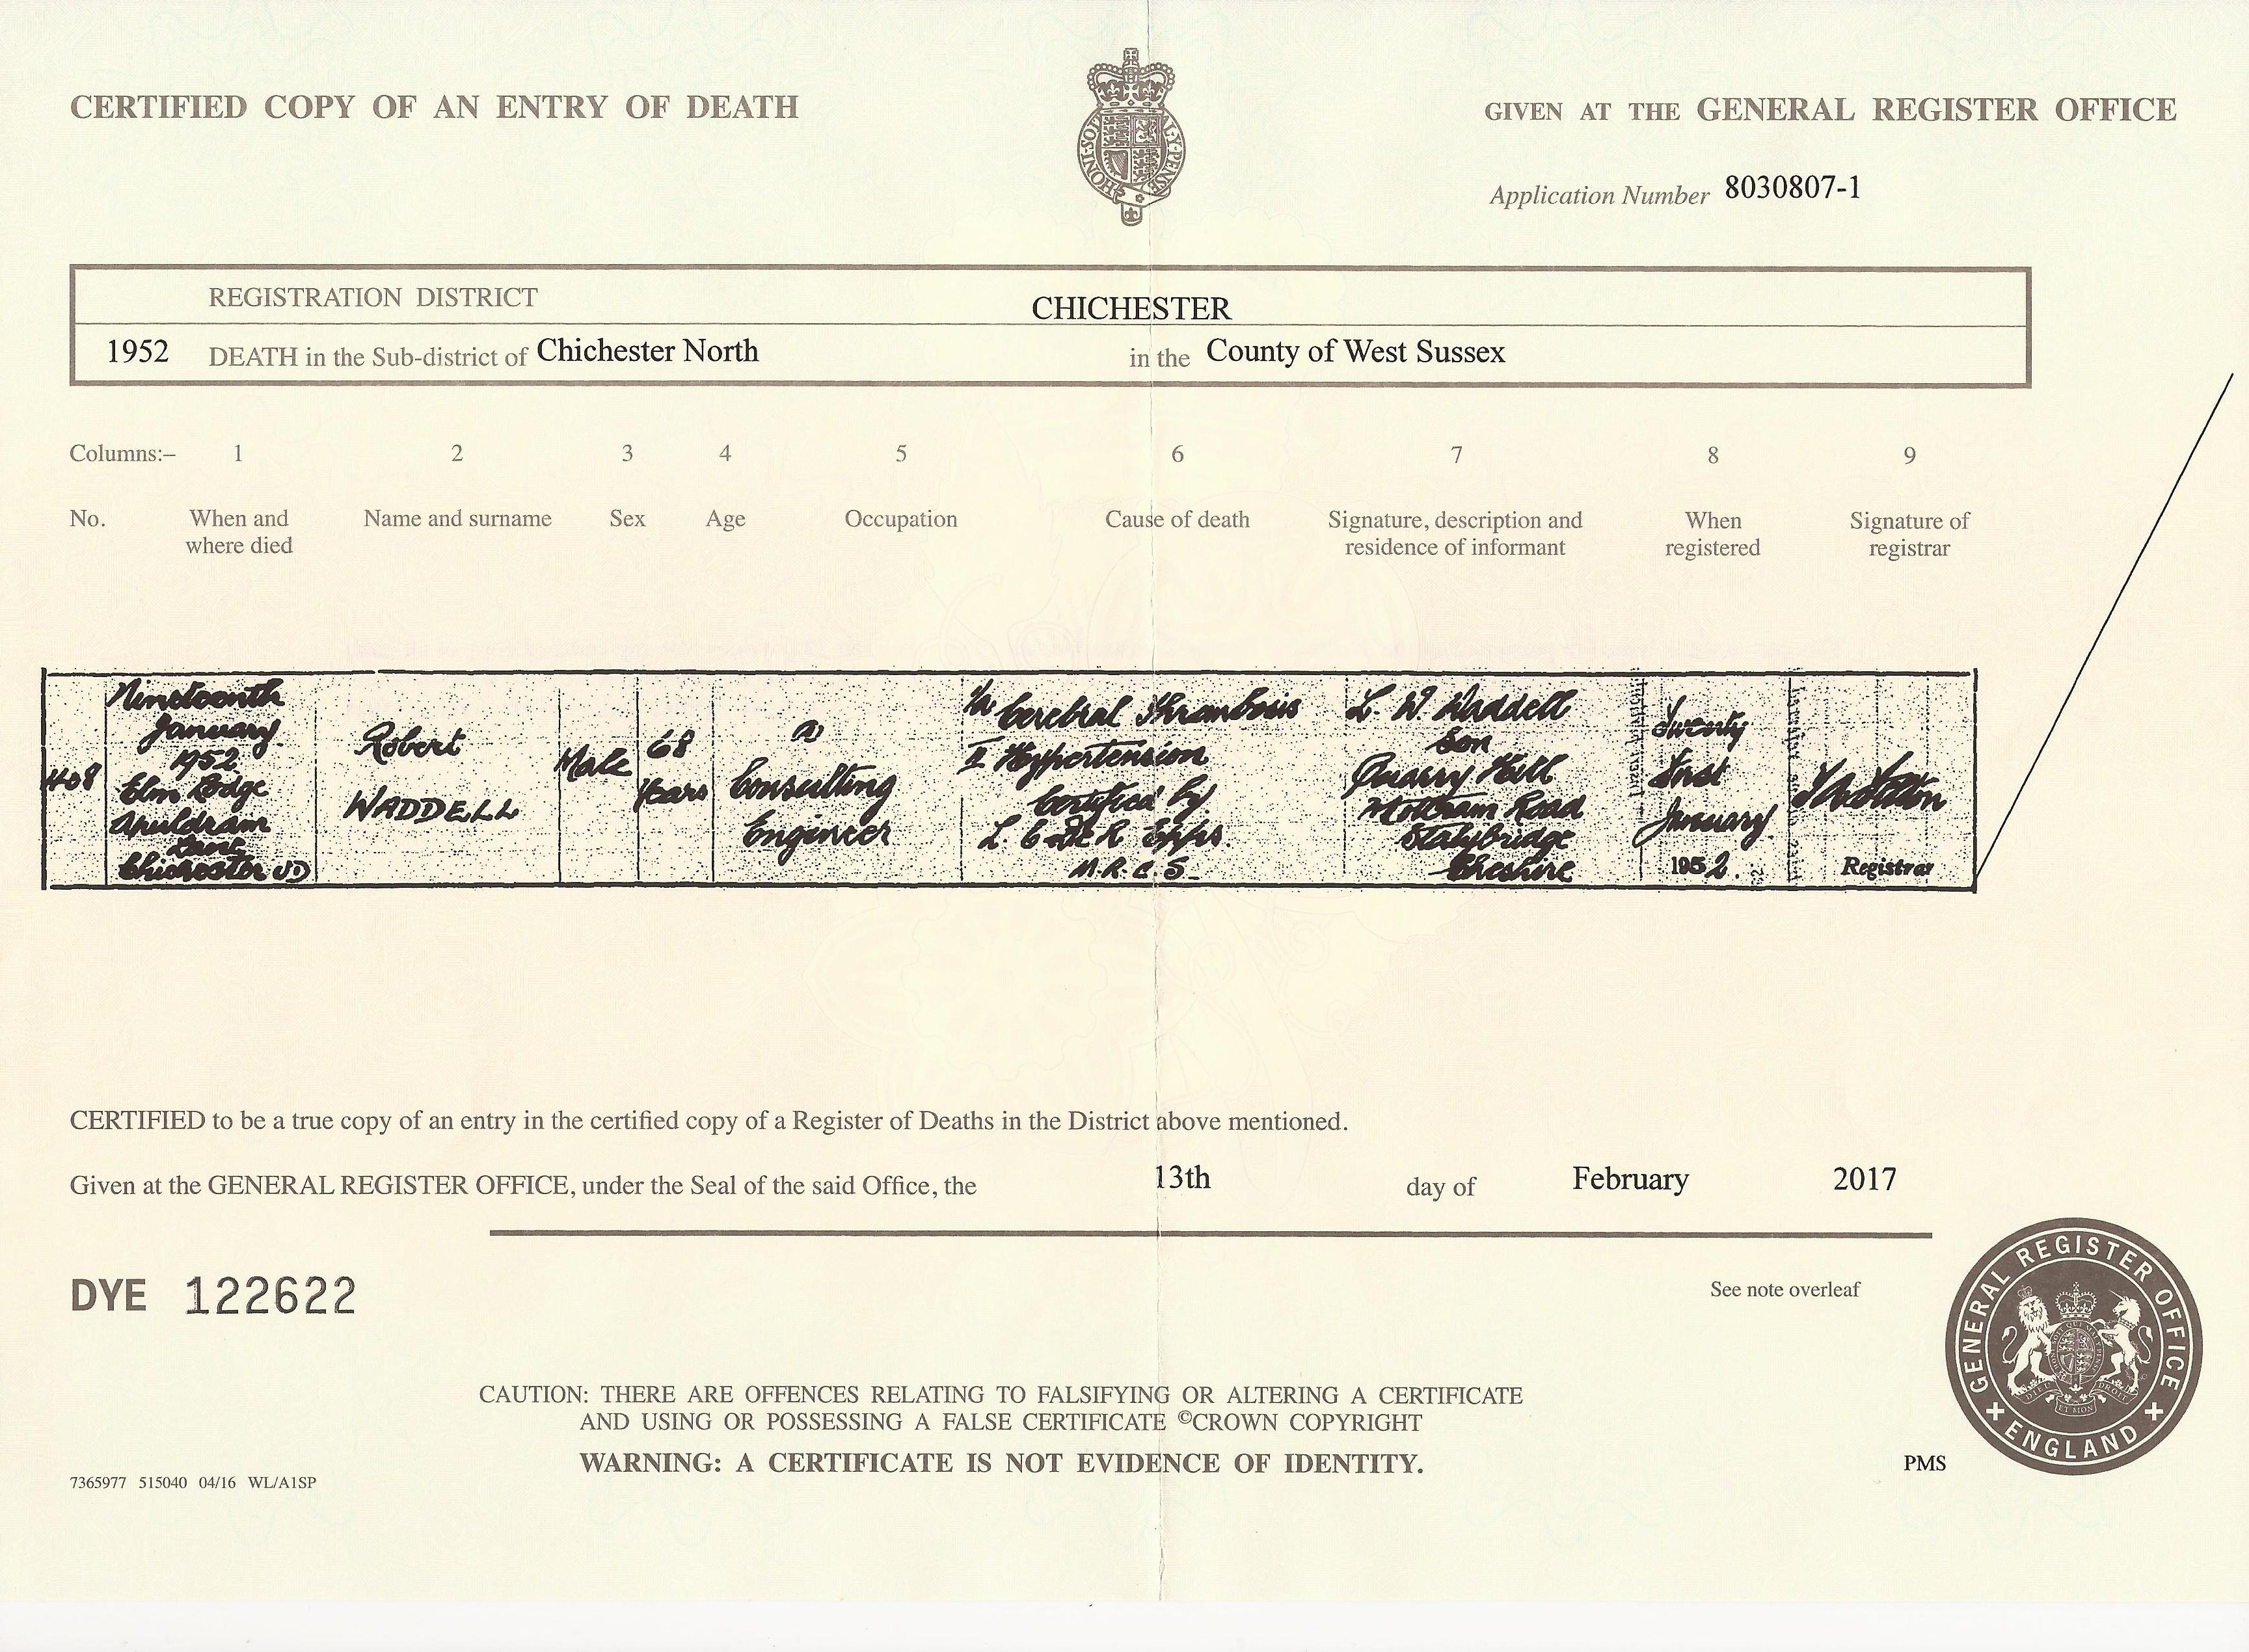 CERTIFIED COPY OF AN ENTRY OF DEATH
GIVEN AT THE GENERAL REGISTER OFFICE
HONI·SOIT Y·PENSE
Application Number 8030807-1
REGISTRATION DISTRICT CHICHESTER
1952 DEATH in the Sub-district of Chichester North in the County of West Sussex
Columns:– 1 2 3 4 5 6 7 8 9
No. When and Name and surname Sex Age Occupation Cause of death Signature, description and When Signature of
where died residence of informant registered registrar
408
Nineteenth
January
1952
Elm Lodge
Apuldram
Lane
Chichester
Robert
WADDELL
Male
68
Years
Consulting
Engineer
Cerebral Thrombosis
II Hypertension
Certified by
Epps.
M.R.C.S.
L. W. Waddell
Son
Quarry Hill
Mottram Road
Stalybridge
Cheshire
Twenty
First
January
1952.
Registrar
CERTIFIED to be a true copy of an entry in the certified copy of a Register of Deaths in the District above mentioned.
Given at the GENERAL REGISTER OFFICE, under the Seal of the said Office, the 13th day of February 2017
DYE 122622
See note overleaf
GENERAL REGISTER OFFICE
ENGLAND
CAUTION: THERE ARE OFFENCES RELATING TO FALSIFYING OR ALTERING A CERTIFICATE
AND USING OR POSSESSING A FALSE CERTIFICATE ©CROWN COPYRIGHT
WARNING: A CERTIFICATE IS NOT EVIDENCE OF IDENTITY.
PMS
7365977 515040 04/16 WL/A1SP